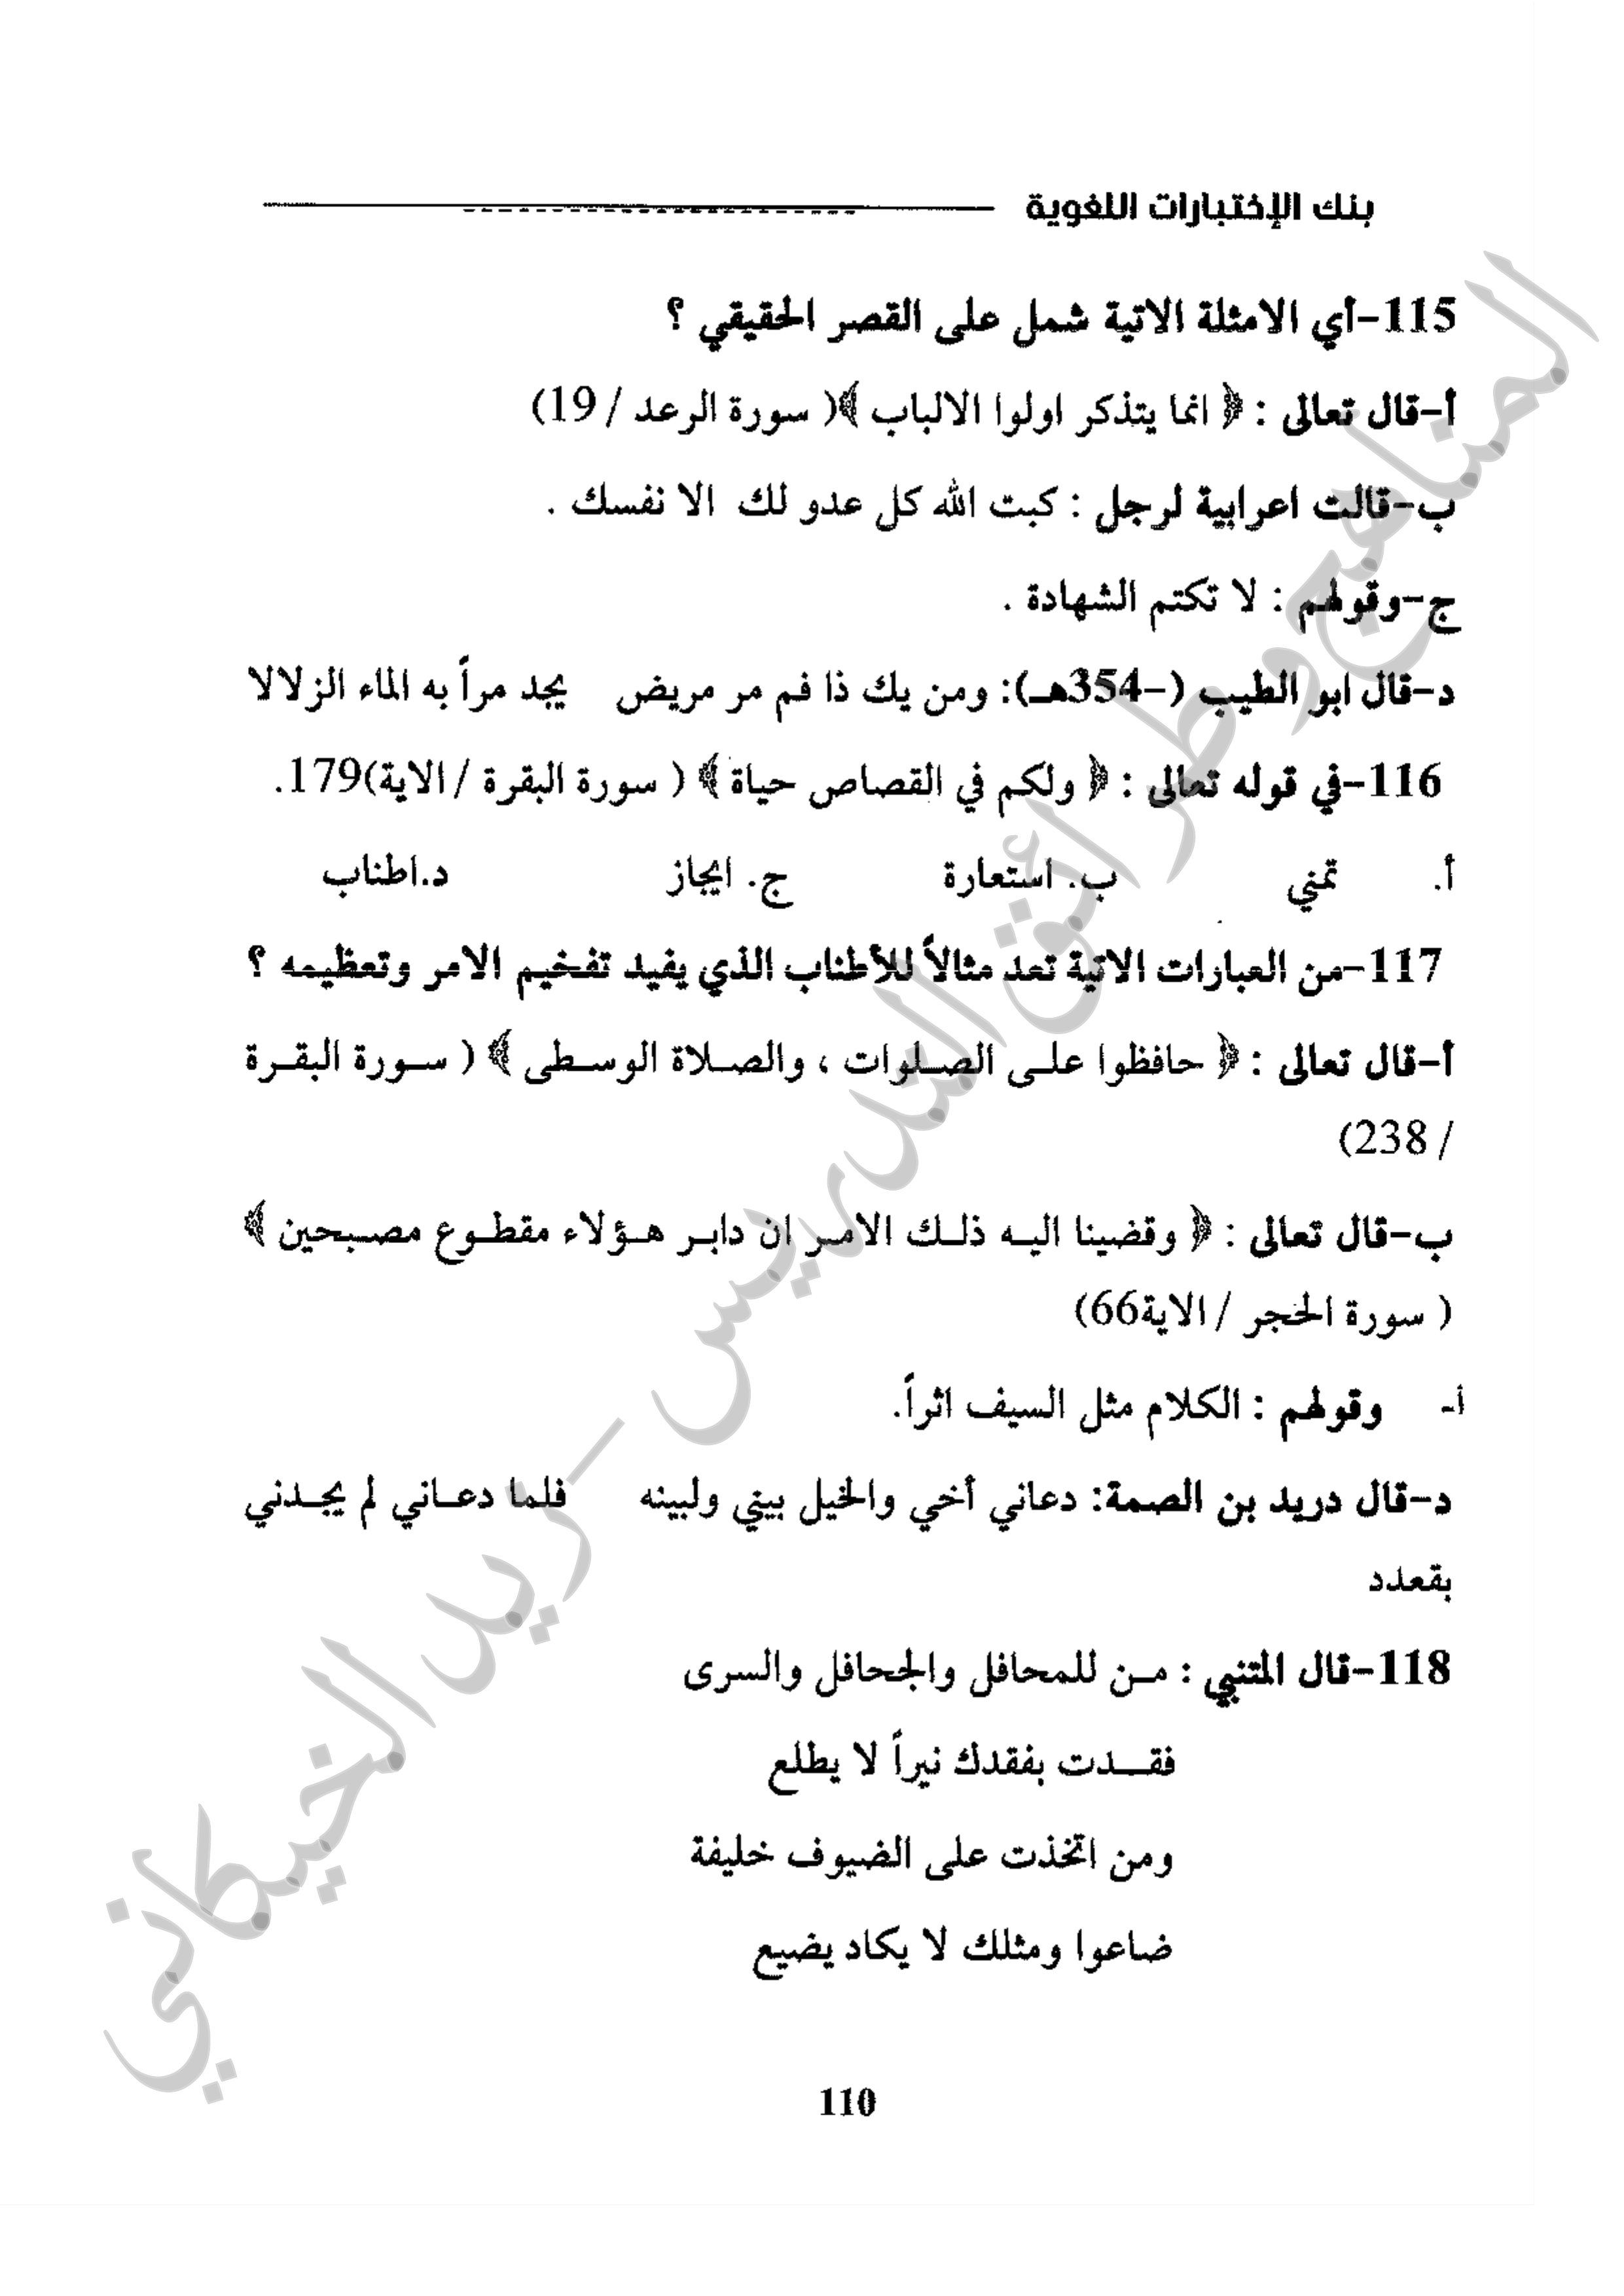 بنك الإختبارات اللغوية
115-أي الامثلة الاتية شمل على القصر الحقيقي ؟
أ-قال تعالى : ﴿ انما يتذكر اولوا الالباب ﴾( سورة الرعد / 19)
ب-قالت اعرابية لرجل : كبت الله كل عدو لك الا نفسك .
ج-وقولهم : لا تكتم الشهادة .
د-قال ابو الطيب (-354هـ): ومن يك ذا فم مر مريض يجد مراً به الماء الزلالا
116-في قوله تعالى : ﴿ ولكم في القصاص حياة ﴾ ( سورة البقرة / الاية)179.
أ. تمني ب. استعارة ج. ايجاز د.اطناب
117-من العبارات الاتية تعد مثالاً للأطناب الذي يفيد تفخيم الامر وتعظيمه ؟
أ-قال تعالى : ﴿ حافظوا على الصلوات ، والصلاة الوسطى ﴾ ( سورة البقرة
/ 238)
ب-قال تعالى : ﴿ وقضينا اليه ذلك الامر ان دابر هؤلاء مقطوع مصبحين ﴾
( سورة الحجر / الاية66)
أ- وقولهم : الكلام مثل السيف اثراً.
د-قال دريد بن الصمة: دعاني أخي والخيل بيني ولبينه فلما دعاني لم يجدني
بقعدد
118-قال المتنبي : من للمحافل والجحافل والسرى
فقدت بفقدك نيراً لا يطلع
ومن اتخذت على الضيوف خليفة
ضاعوا ومثلك لا يكاد يضيع
110
المناهج وطرائق التدريس - ريد الخيكاني